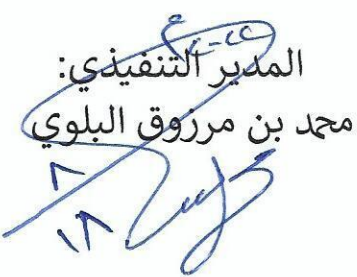 المدير التنفيذي:
محمد بن مرزوق البلوي
٨
١٨